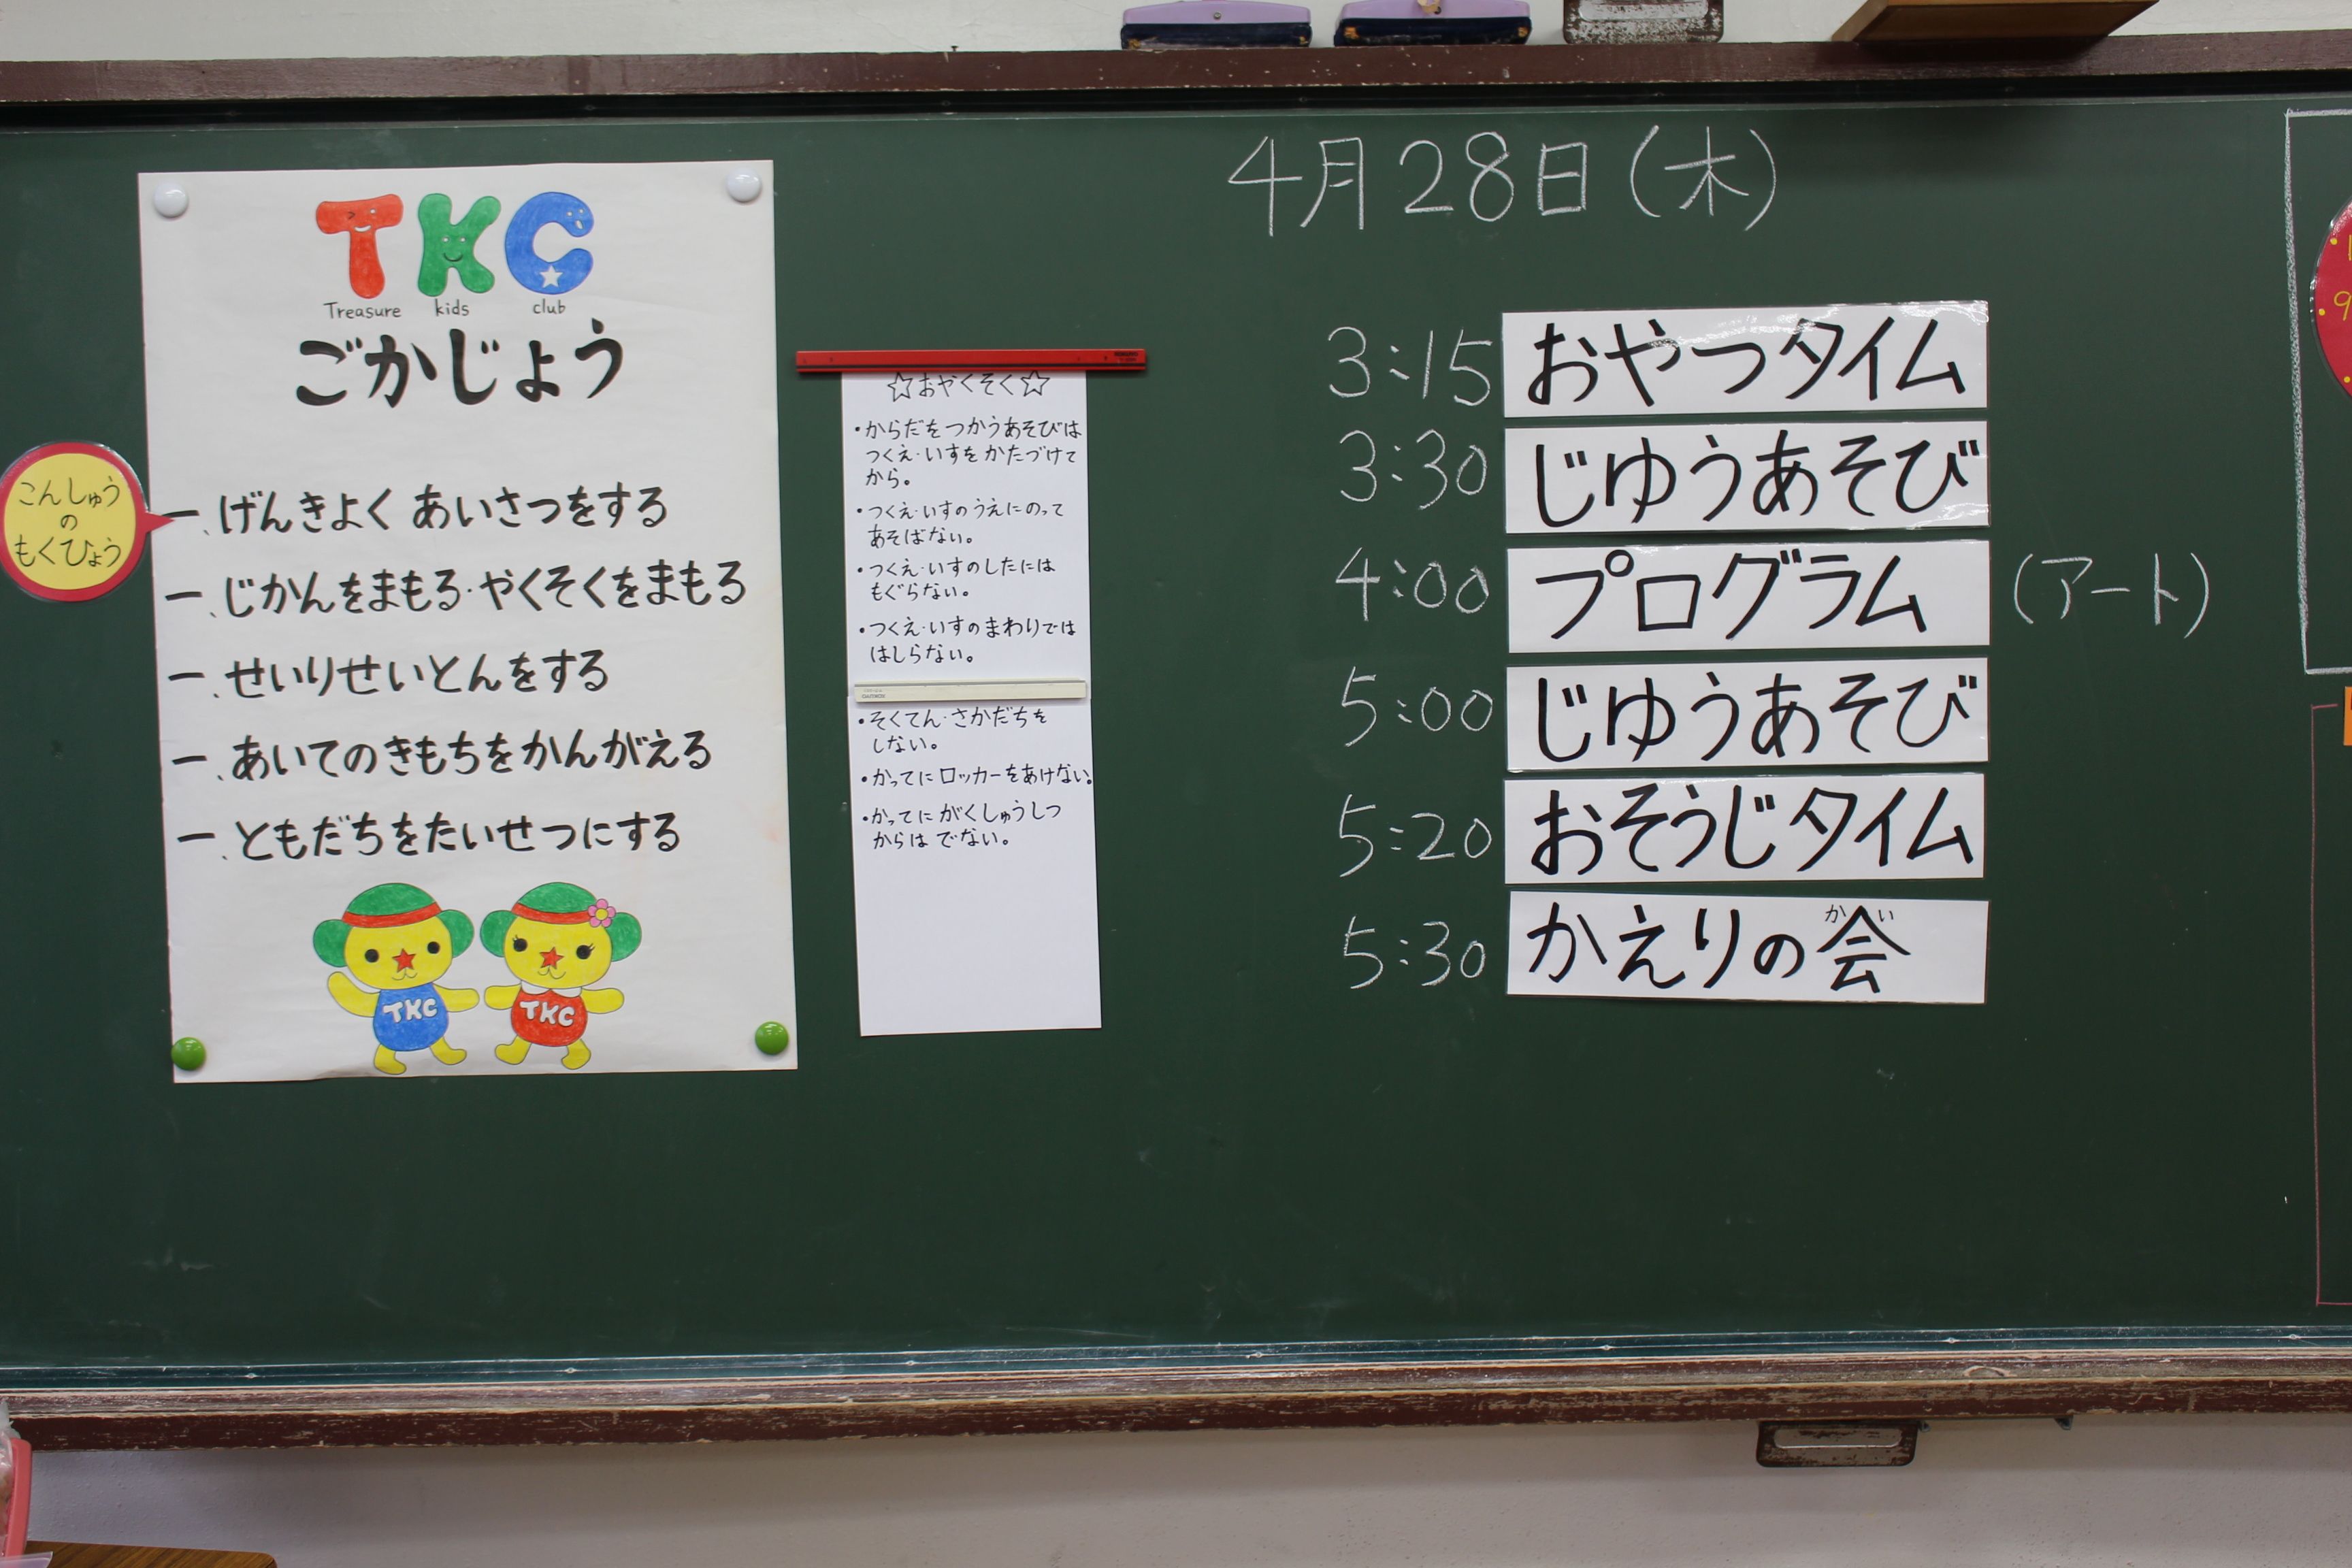 TKC
Treasure kids club
ごかじょう
こんしゅう
の
もくひょう
一、げんきよく あいさつをする
一、じかんをまもる・やくそくをまもる
一、せいりせいとんをする
一、あいてのきもちをかんがえる
一、ともだちをたいせつにする
TKC
TKC
☆おやくそく☆
・からだをつかうあそびは
つくえ・いすをかたづけて
から。
・つくえ・いすのうえにのって
あそばない。
・つくえ・いすのしたには
もぐらない。
・つくえ・いすのまわりでは
はしらない。
・そくてん・さかだちを
しない。
・かってにロッカーをあけない。
・かってにがくしゅうしつ
からはでない。
4月28日(木)
3:15 おやつタイム
3:30 じゆうあそび
4:00 プログラム (アート)
5:00 じゆうあそび
5:20 おそうじタイム
かい
5:30 かえりの会
9